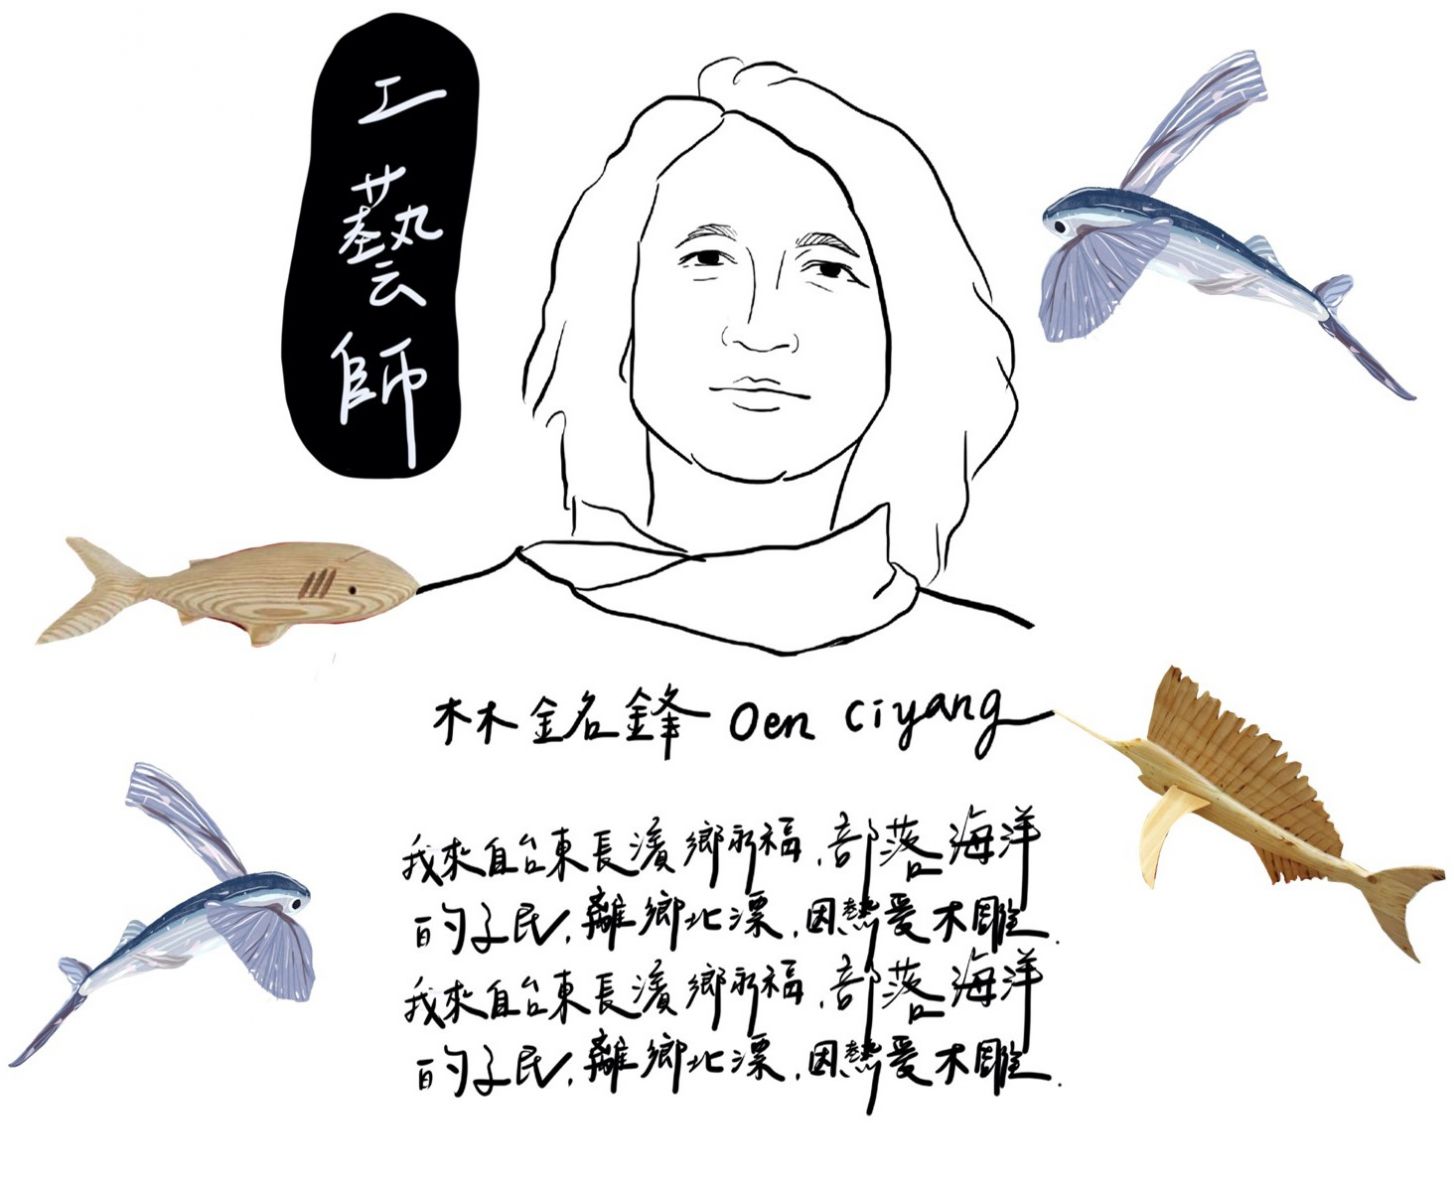 工藝師
林銘鋒 Oen Ciyang
我來自台東長濱鄉永福,部落海洋
的子民,離鄉北漂,因熱愛木雕.
我來自台東長濱鄉永福,部落海洋
的子民,離鄉北漂,因熱愛木雕.